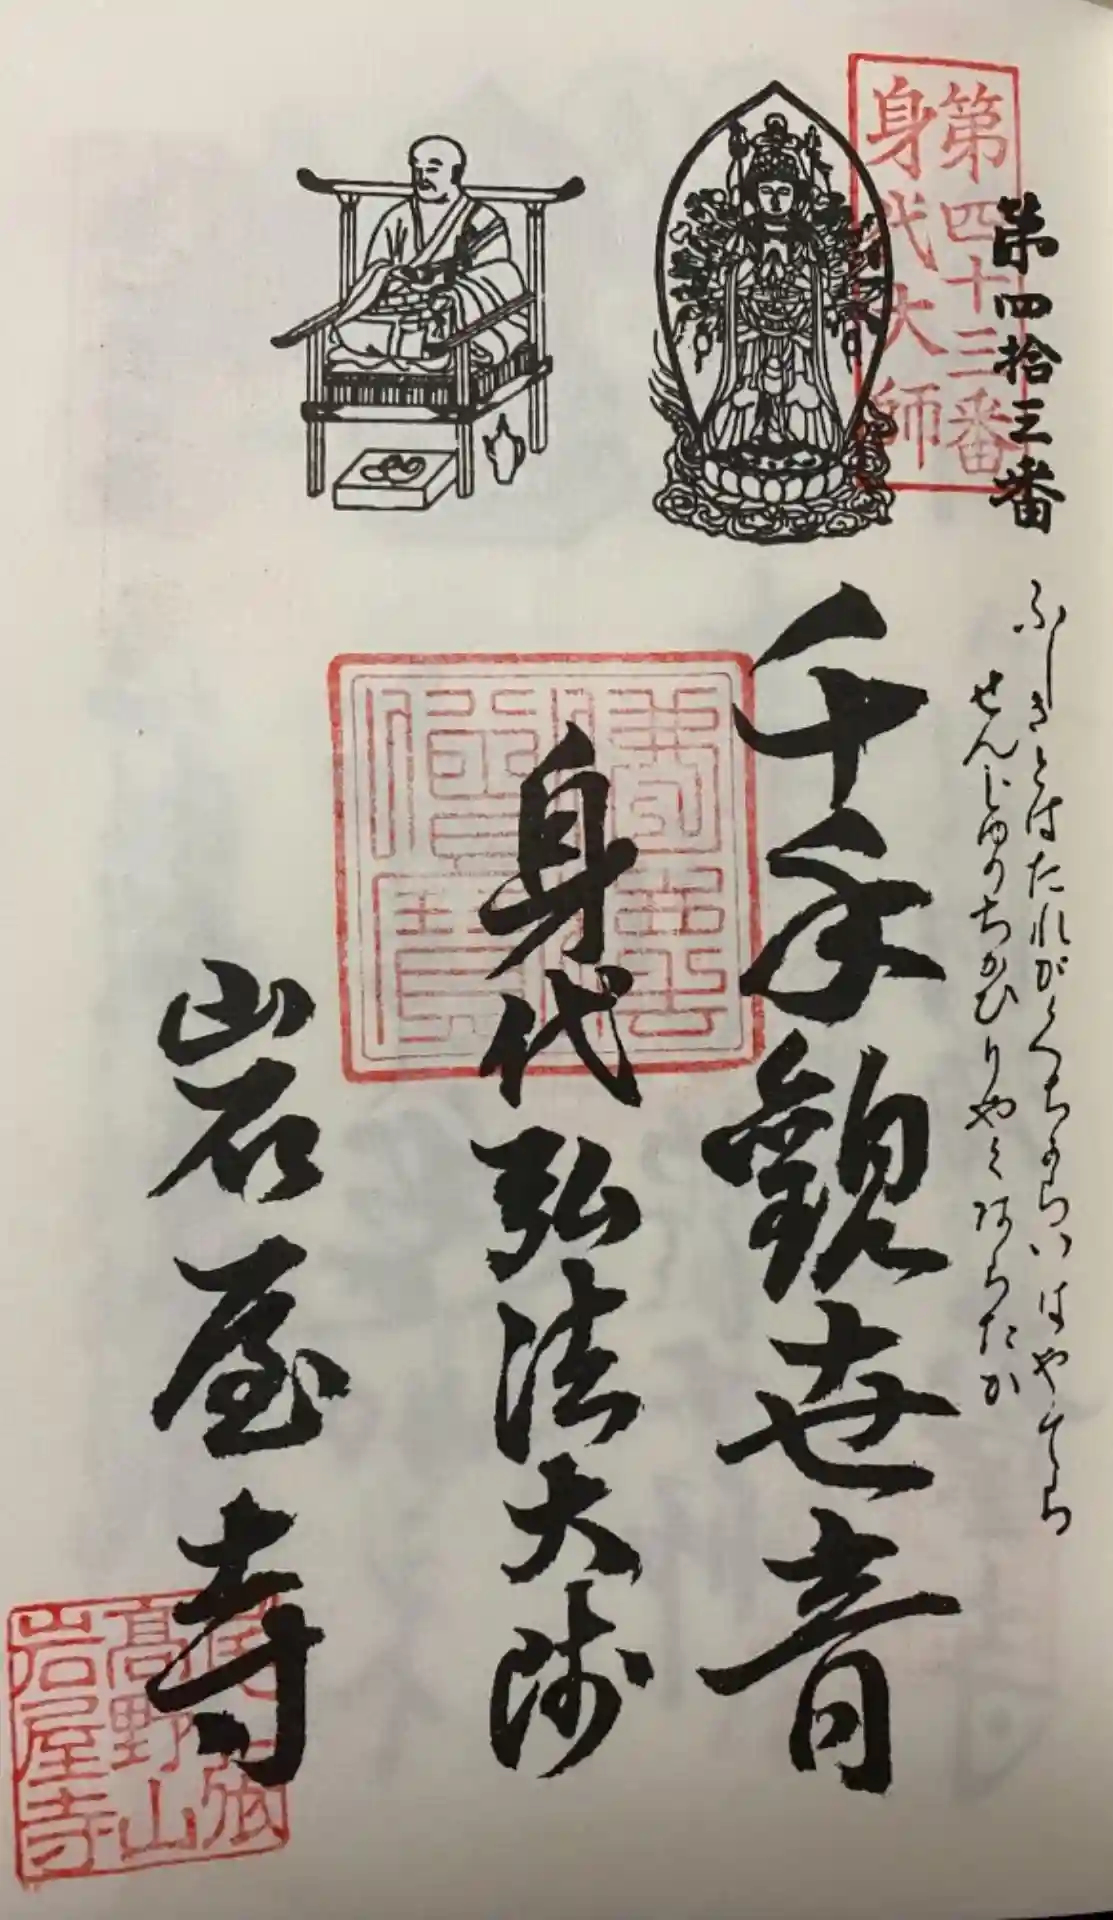 第四十三番
身代大師
第四拾三番
ふしきとはたれがくちからいはやてら
せんじゆのちかひりやくあらたか
千手觀世音
身代弘法大師
岩屋寺
尾張
高野山
岩屋寺